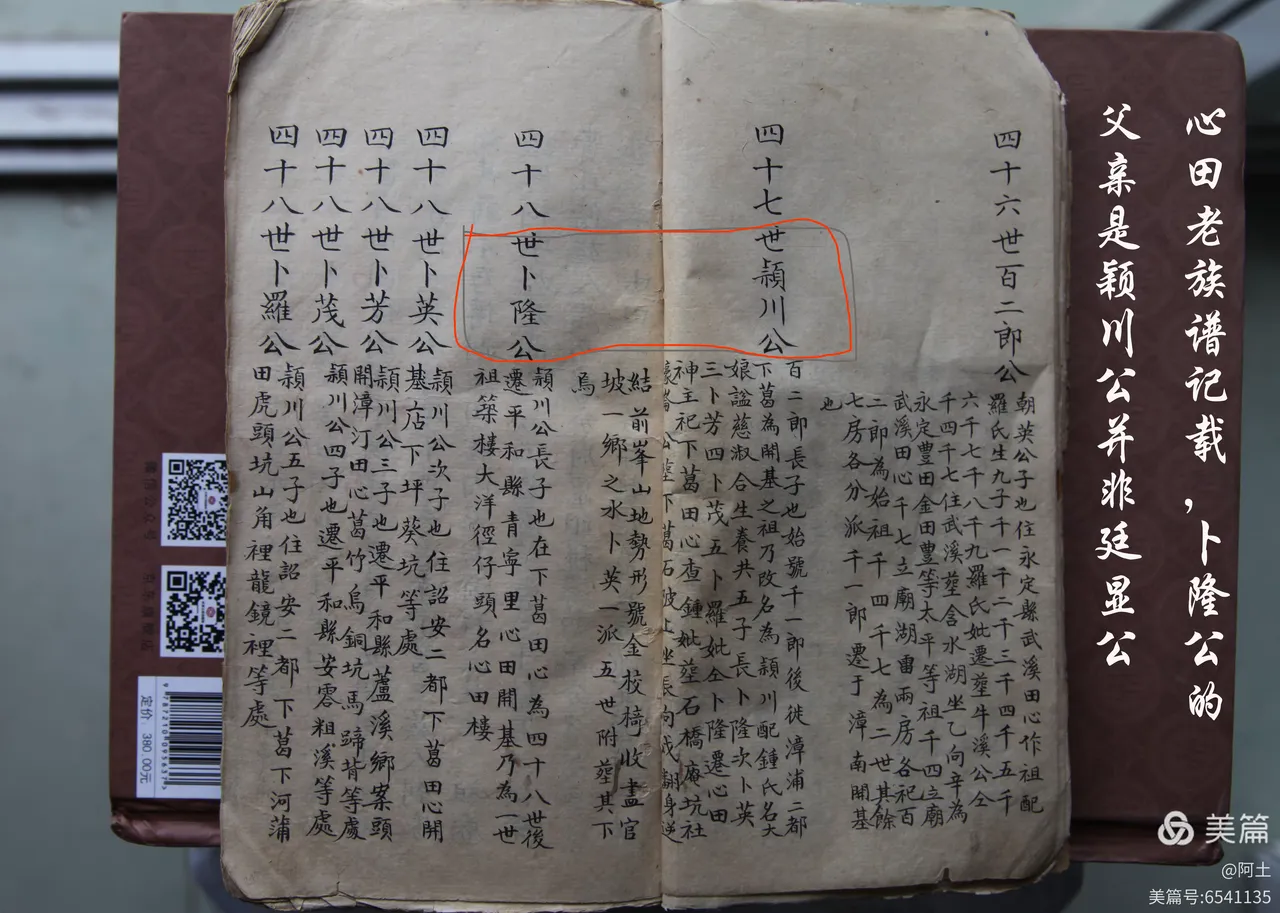 心田老族谱记载，卜隆公的
父亲是颖川公并非廷显公
四十六世百二郎公
朝英公子也住永定縣武溪田心作祖配
羅氏生九子千一千二千三千四千五千
六千七千八千九羅氏妣遷塟牛溪公仝
千四千七住武溪塟含水湖坐乙向辛為
永定豐田金田豐等太平等祖千四立廟
武溪田心千七立廟湖雷兩房各祀百
二郎為始祖千四千七為二世其餘
七房各分派千一郎遷于漳南開基
也
四十七世頴川公
百二郎長子也始號千一郎後徙漳浦二都
下葛為開基之祖乃改名為頴川配鍾氏名大
娘諡慈淑合生養共五子長卜隆次卜英
三卜芳四卜茂五卜羅妣仝卜隆遷心田
神主祀下葛田心查鍾妣塟石橋坑社
公塟下葛石陂上坐辰向戌翻身逆
結前峯山地勢形號金校椅收盡官
坡一鄉之水卜英一派五世附塟其下
烏
四十八世卜隆公
頴川公長子也在下葛田心為四十八世後
遷平和縣青寧里心田開基乃為一世
祖築樓大洋徑仔頭名心田樓
四十八世卜英公
頴川公次子也住詔安二都下葛田心開
基店下坪葵坑等處
四十八世卜芳公
頴川公三子也遷平和縣蘆溪鄉寨頭
開漳汀田心葛竹烏銅坑馬蹄背等處
四十八世卜茂公
頴川公四子也遷平和縣安雰粗溪等處
四十八世卜羅公
頴川公五子也住詔安二都下葛下河蒲
田虎頭坑山角裡龍鏡裡等處
定价：380.00元
美篇
@阿土
美篇号:6541135